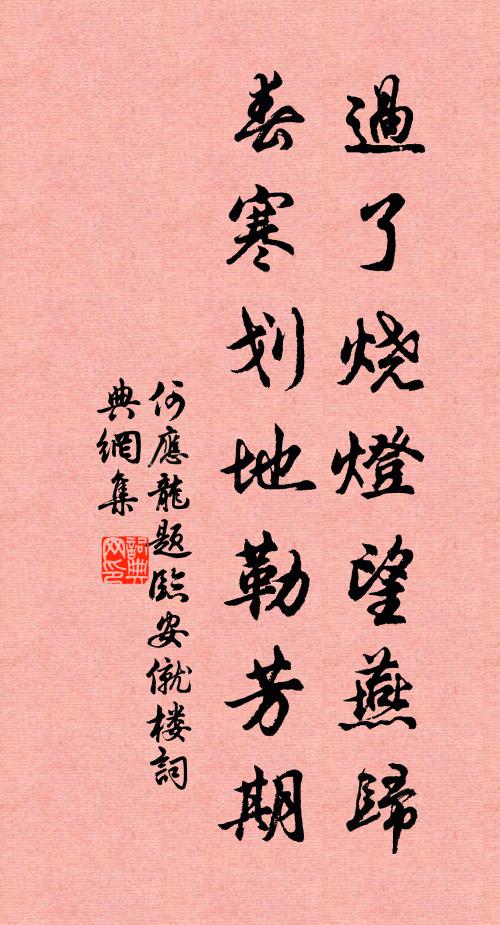 過了烧燈望燕歸
春寒划地勒芳期
何應龍題臨安僦楼詞
典網集
詞典
网印